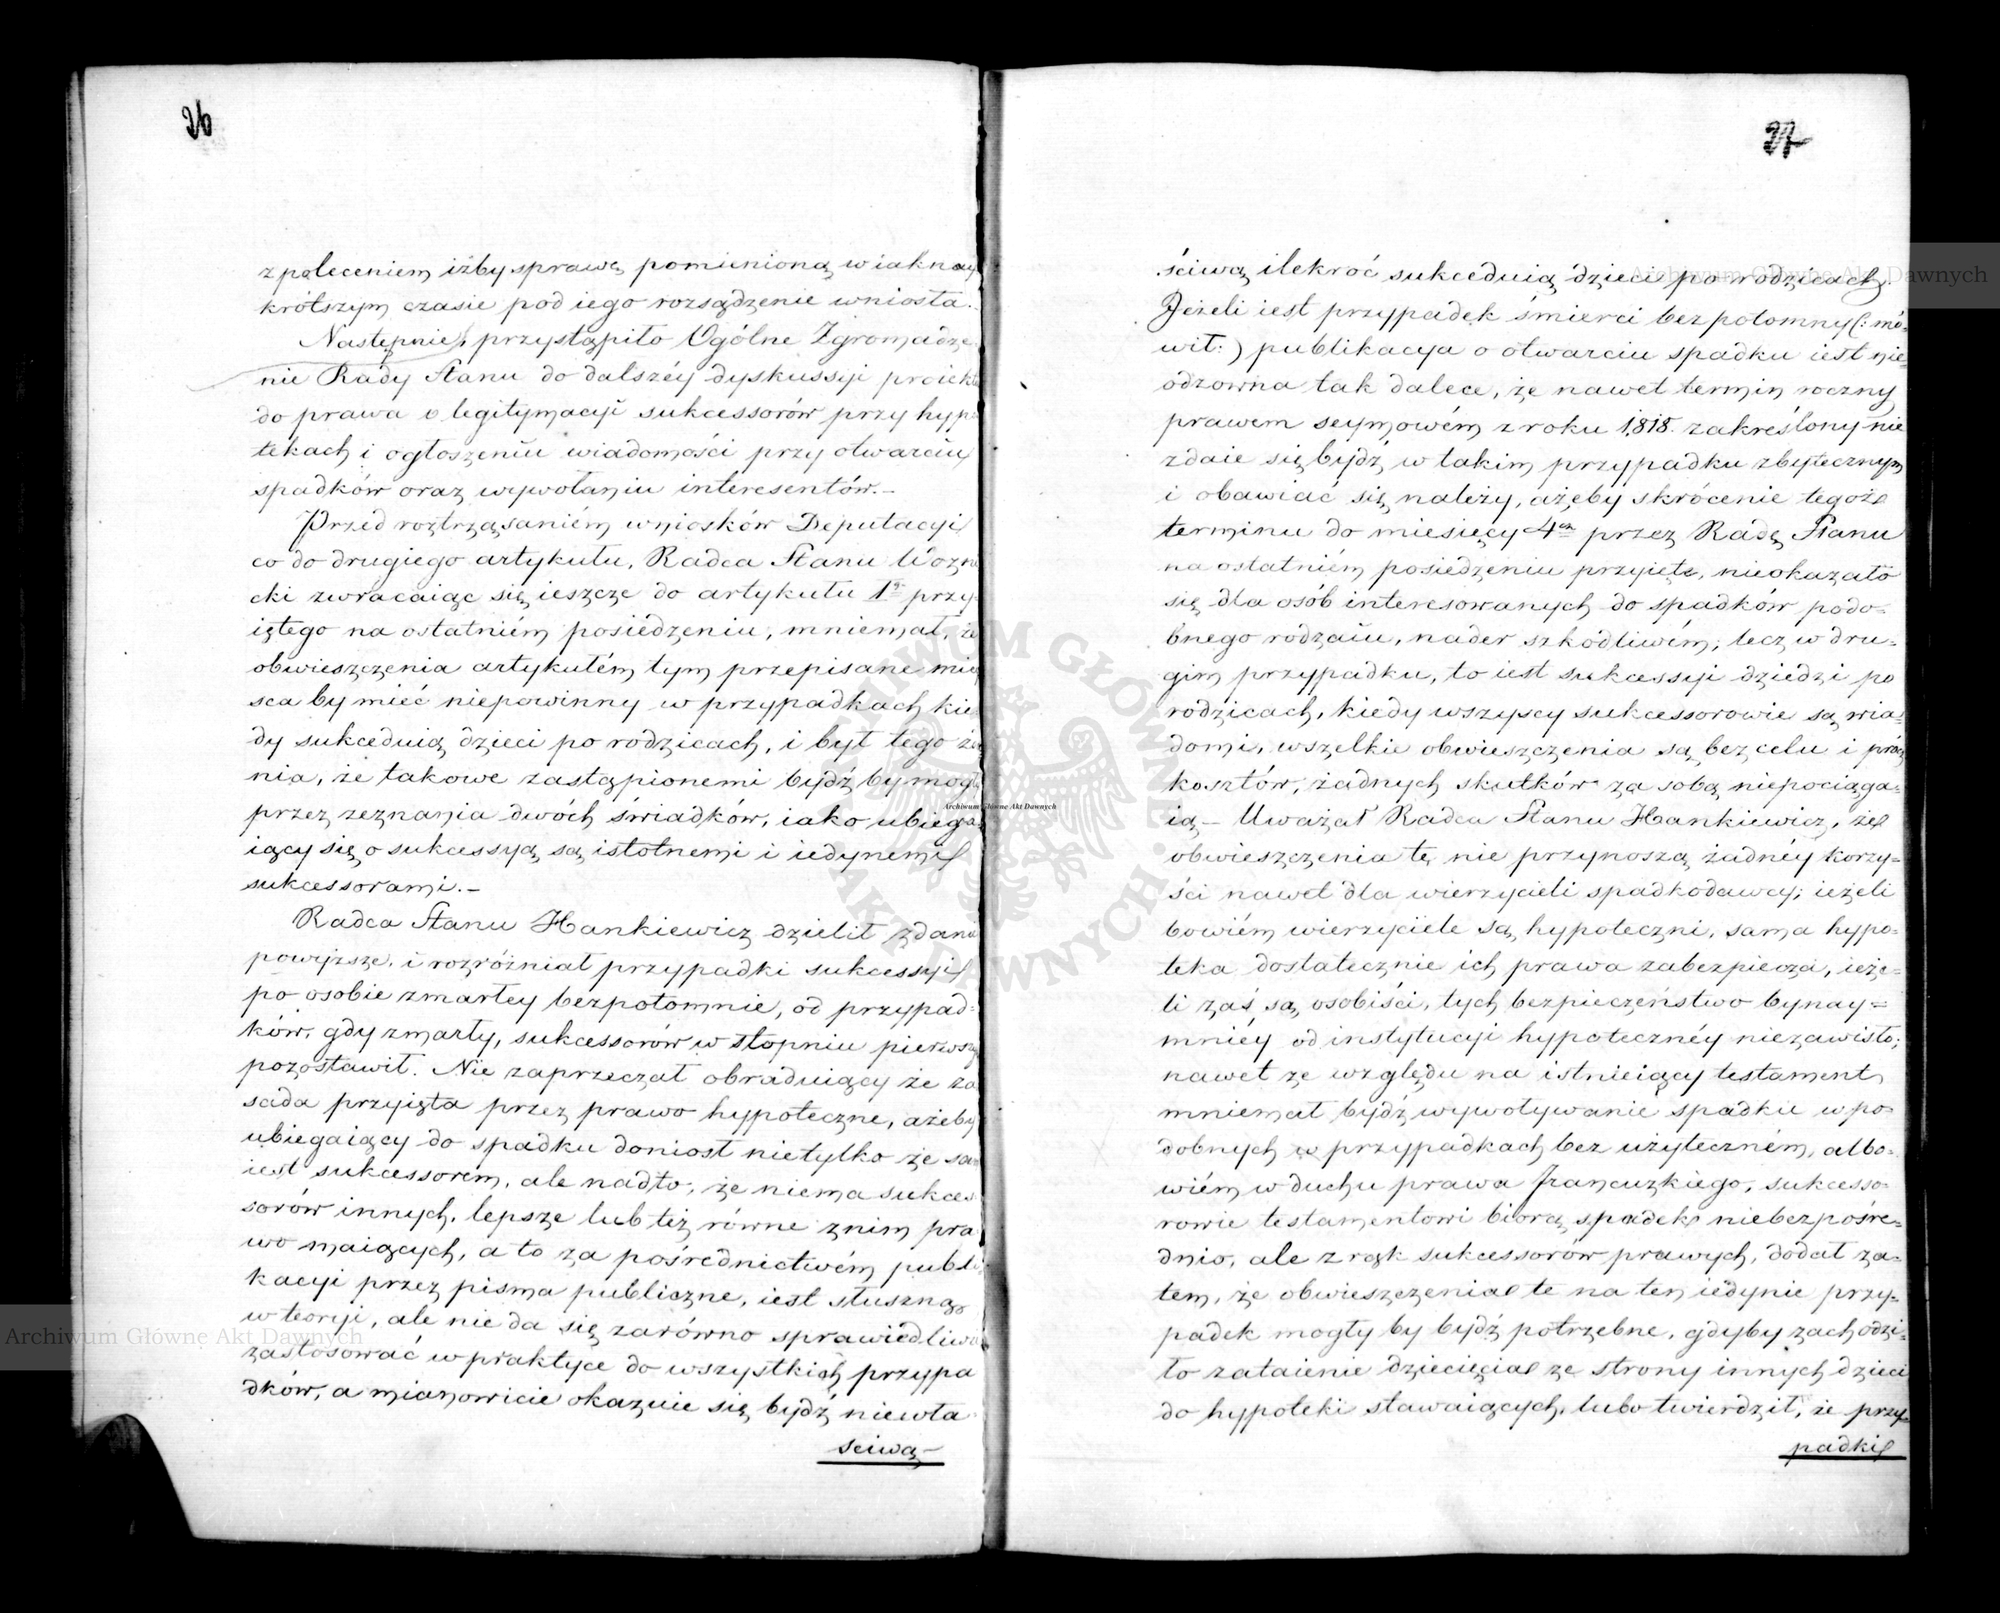 26
z poleceniem iżby sprawę pomienioną w iaknay
krótszym czasie pod iego rozsądzenie wniosła.
Następnie, przystąpiło Ogólne Zgromadze
nie Rady Stanu do dalszéy dyskussyi proiek
do prawa o legitymacyi sukcessorów przy hypo
tekach i ogłoszeniu wiadomości przy otwarciu
spadków oraz wywołaniu interesentów.—
Przed roztrząsaniém wniosków Deputacyi
co do drugiego artykułu, Radca Stanu Woźni
cki zwracaiąc się ieszcze do artykułu 1go przy
iętego na ostatniém posiedzeniu, mniemał, że
obwieszczenia artykułém tym przepisane miey
sca by mieć niepowinny w przypadkach kie
dy sukceduią dzieci po rodzicach, i był tego żą
nia, że takowe zastąpionemi bydź by mogły
przez zeznania dwóch świadków, iako ubiega
iący się o sukcessyą są istotnemi i iedynemi
sukcessorami.—
Radca Stanu Hankiewicz dzielił zdani
powyższe, i rozróżniał przypadki sukcessyi
po osobie zmarłey bezpotomnie, od przypad=
ków, gdy zmarły, sukcessorów w stopniu pierwszy
pozostawił. Nie zaprzeczał obraduiący że za
sada przyięta przez prawo hypoteczne, ażeby
ubiegaiący do spadku doniosł nietylko że sam
iest sukcessorém, ale nadto, że niema sukces
sorów innych, lepsze lub też równe z nim pra
wo maiących, a to za pośrednictwém publi
kacyi przez pisma publiczne, iest słuszną
w teoryi, ale nie da się zarówno sprawiedliwie
zastosować w praktyce do wszystkich przypa
dków, a mianowicie okazuie się bydź niewła
sciwą—
27
ściwą ilekroć sukceduią dzieci po rodzicach.
Jeżeli iest przypadek śmierci bezpotomny (: mó=
wił :) publikacya o otwarciu spadku iest nie=
odzowna tak dalece, że nawet termin roczny
prawem seymowém z roku 1818. zakreślony nie
zdaie się bydź w takim przypadku zbytecznym
i obawiać się należy, ażeby skrócenie tegoż
terminu do miesięcy 4ch przez Radę Stanu
na ostatniém posiedzeniu przyięte, nieokazało
się dla osób interesowanych do spadków podo=
bnego rodzaiu, nader szkódliwém; lecz w dru=
gim przypadku, to iest sukcessyi dziedzi po
rodzicach, kiedy wszyscy sukcessorowie są wia=
domi, wszelkie obwieszczenia są bez celu i prócz
kosztów, żadnych skutków za sobą niepociąga=
ią— Uważał Radca Stanu Hankiewicz, że
obwieszczenia te nie przynoszą żadnéy korzy=
ści nawet dla wierzycieli spadkodawcy; ieżeli
bowiém wierzyciele są hypoteczni, sama hypo=
teka dostatecznie ich prawa zabezpiecza, ieże=
li zaś są osobiści, tych bezpieczeństwo bynay=
mniéy od instytucyi hypotecznéy niezawisło;
nawet ze względu na istnieiący testament
mniemał bydź wywoływanie spadku w po=
dobnych w przypadkach bez użyteczném, albo=
wiém w duchu prawa francuzkiego, sukcesso=
rowie testamentowi biorą spadek niebezpośre=
dnio, ale z rąk sukcessorów prawych, dodał za=
tem, że obwieszczenia te na ten iedynie przy=
padek mogły by bydź potrzebne, gdyby zachodzi=
ło zataienie dziecięcia ze strony innych dzieci
do hypoteki stawaiących, lubo twierdził, że przy=
padki
Archiwum Główne Akt Dawnych
Archiwum Główne Akt Dawnych
Archiwum Główne Akt Dawnych
ARCHIWUM GŁÓWNE AKT DAWNYCH